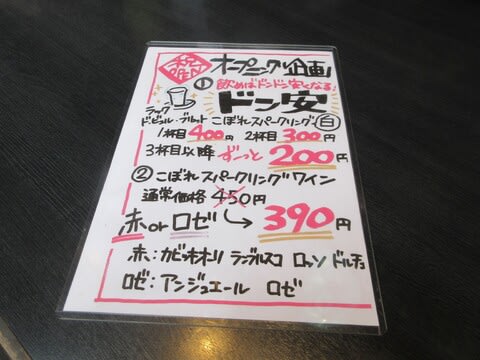 オープニング企画
① 飲めばドンドン安くなる!
ドン安
ラック
ド・ビュル・ブリュット こぼれスパークリング 白
1杯目 400円 2杯目 300円
3杯目以降 ずーっと 200円
② こぼれスパークリングワイン
通常価格 450円
赤 or ロゼ → 390円
赤:カビッキオーリ ランブルスコ ロッソ ドルチェ
ロゼ:アンジュエール ロゼ